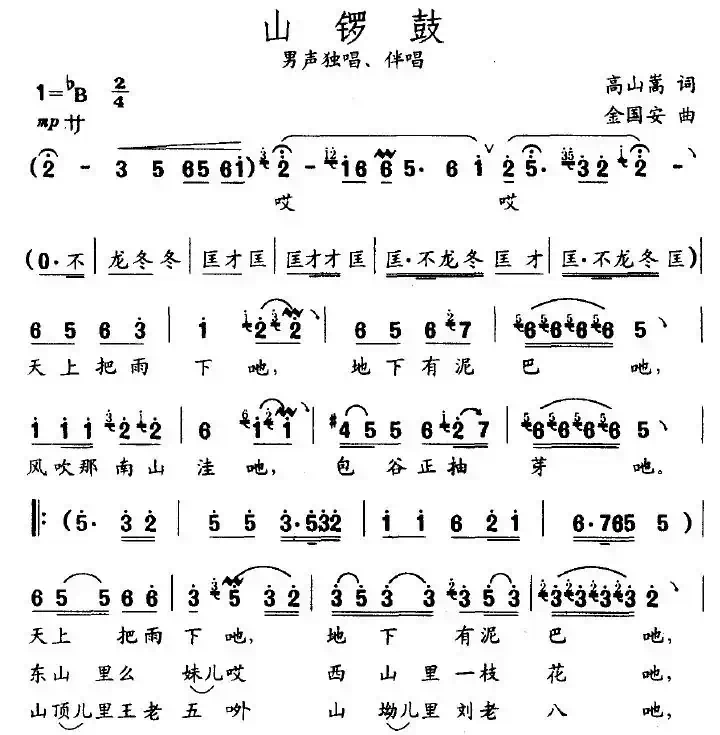 山锣鼓
男声独唱、伴唱
1=♭B 2/4
高山嵩 词
金国安 曲
mp 廿
(2 - 3 5 65 61) 2 - 16 6 5· 6 1 2 5· 32 2 -
哎 哎
(0·不 | 龙冬冬 | 匡才匡 | 匡才才匡 | 匡·不龙冬 匡才 | 匡·不龙冬匡)
6 5 6 3 | 1 2 2 | 6 5 6 7 | 6 6 6 6 6 5
天上把雨 下吔, 地下有泥 巴 吔,
1 1 1 2 2 | 6 1 1 | #4 5 5 6 2 7 | 6 6 6 6 6 5
风吹那南山 洼吔, 包谷正抽 芽 吔。
‖: (5· 3 2 | 5 5 3·532 | 1 1 6 2 1 | 6·765 5)
6 5 5 6 6 | 3 5 3 2 | 3 5 3 3 3 5 3 | 3 3 3 3 3 2
天上 把雨 下吔, 地下 有泥 巴 吔,
东山 里么 妹儿哎 西山里一枝 花 吔,
山顶儿里王老 五吔 山坳儿里刘老 八 吔,